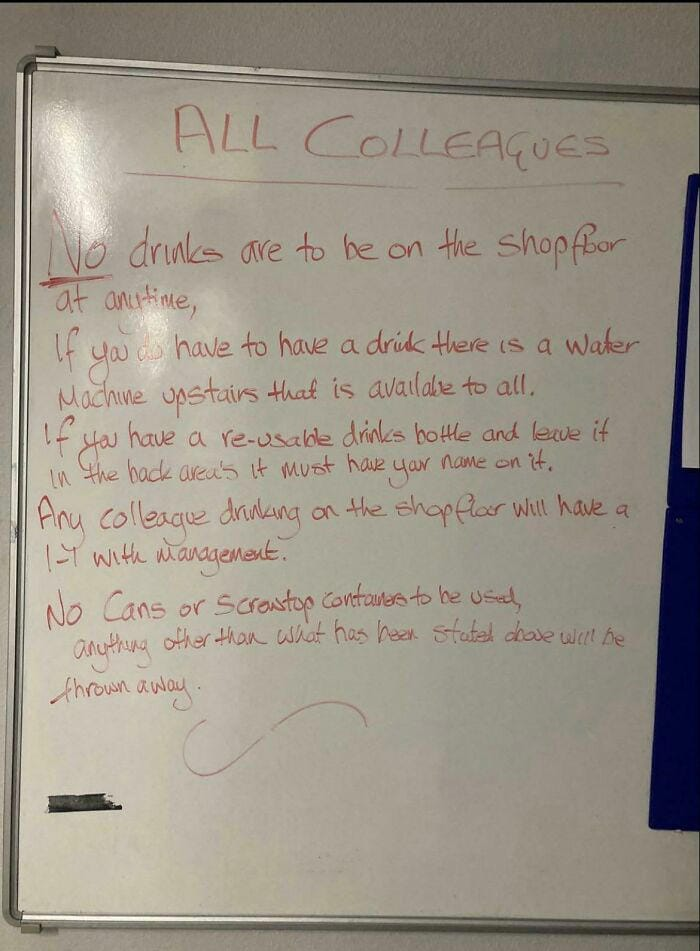 ALL COLLEAGUES
No drinks are to be on the shopfloor
at anytime,
If you do have to have a drink there is a water
Machine upstairs that is available to all.
If you have a re-usable drinks bottle and leave it
in the back area's it must have your name on it.
Any colleague drinking on the shopfloor will have a
1-1 with management.
No Cans or Screwtop containers to be used,
anything other than what has been stated above will be
thrown away.